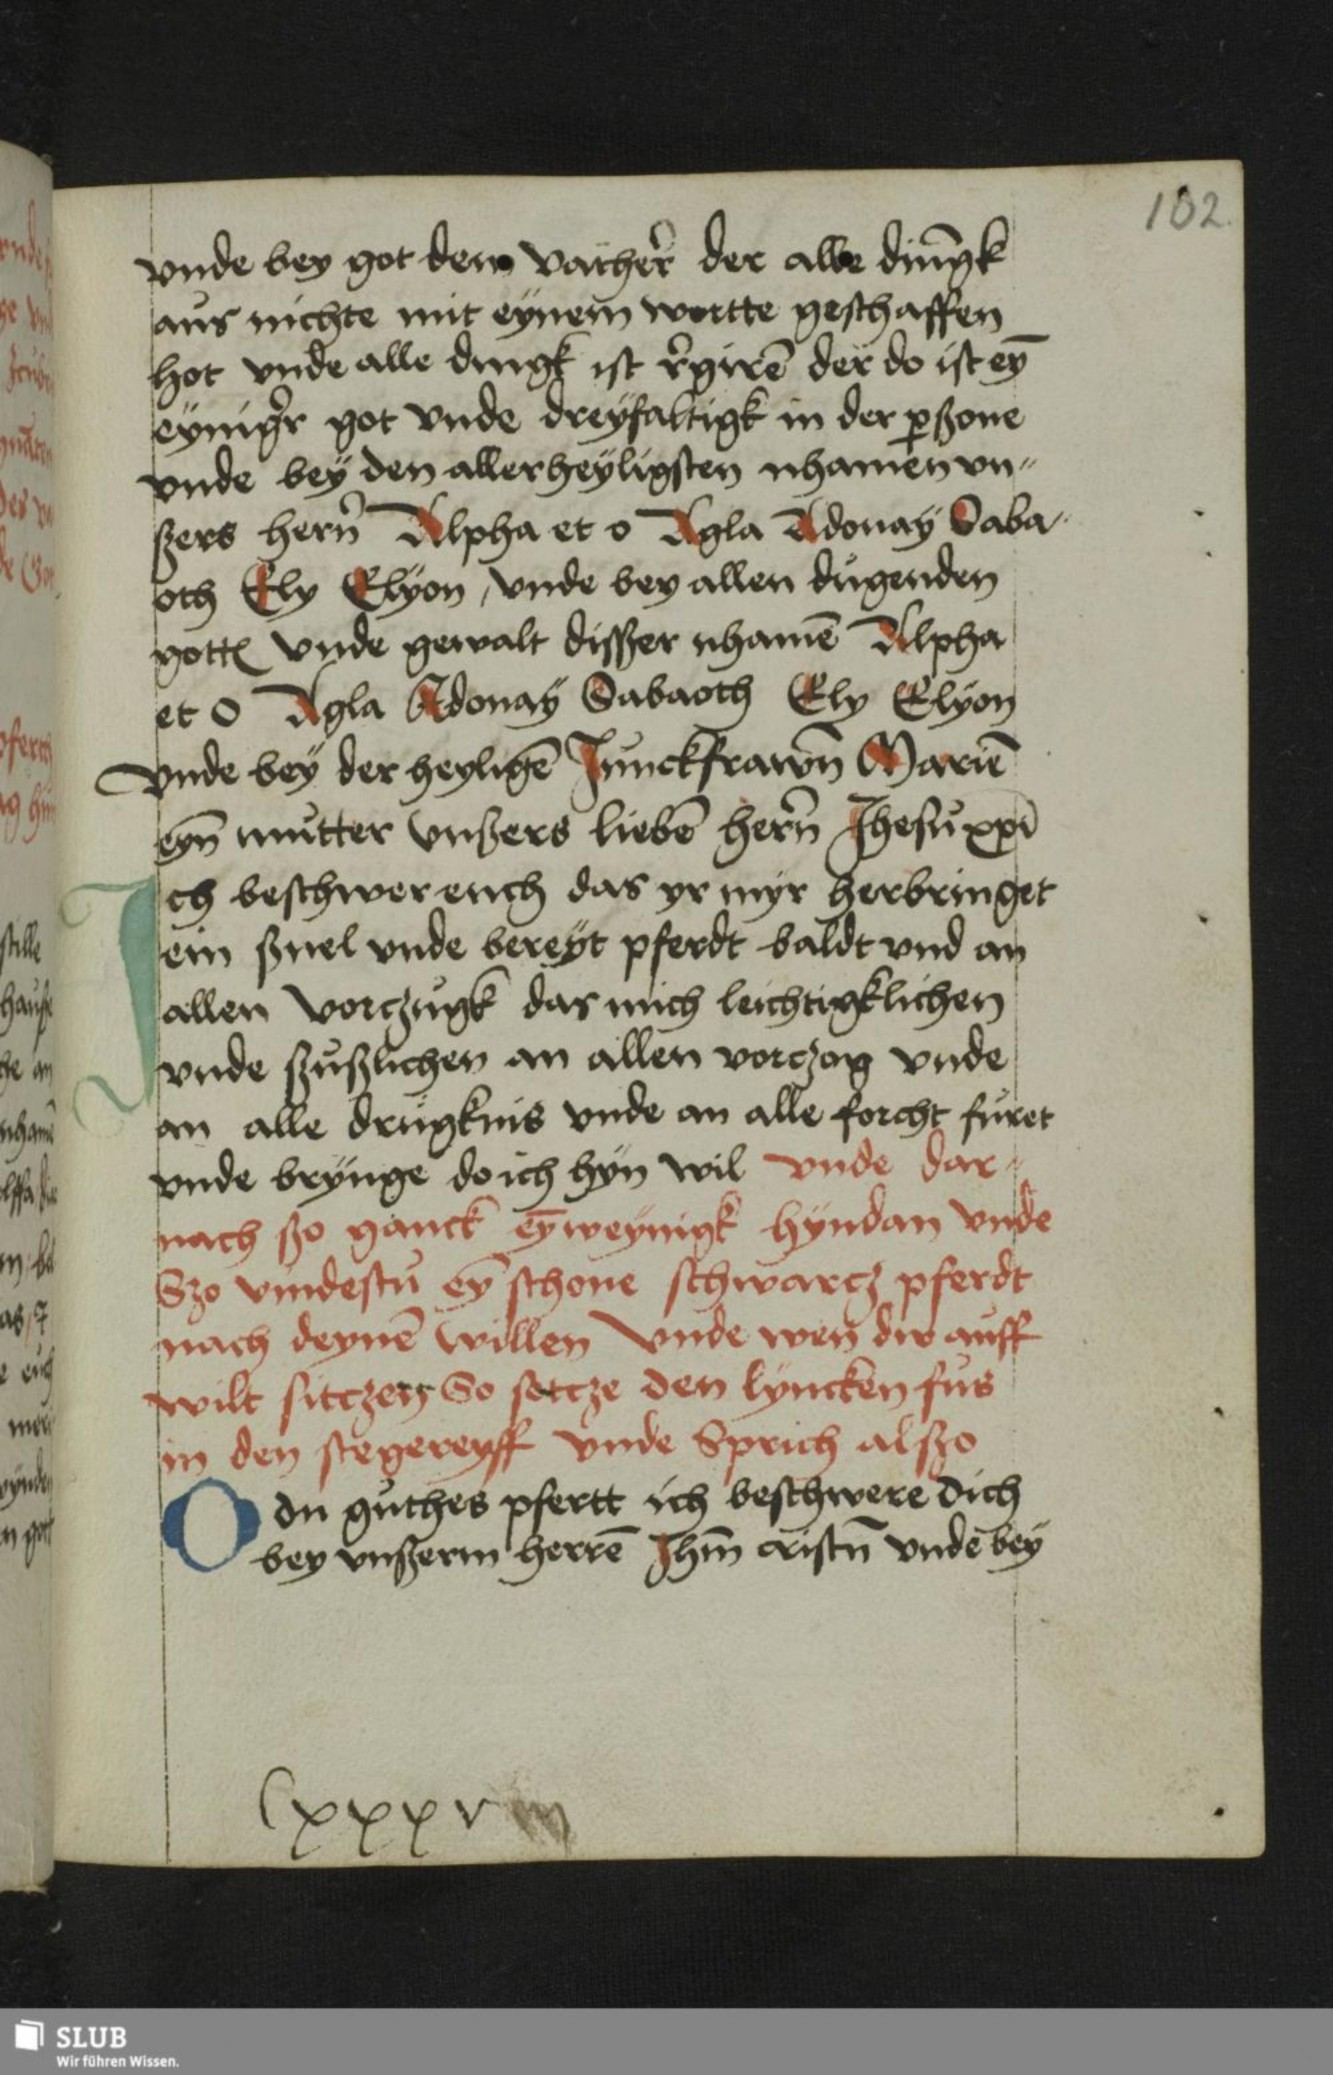 102
vnde bey got dem vather̃ der alle dingk
aus nichte mit eynem wortte geschaffen
hot vnde alle dingk ist r̃girẽ der do ist eỹ
eynig̃r got vnde dreyfaltigk in der ꝑßone
vnde bey den allerheyligsten nhamen vn„
ßers herñ Alpha et o Agla Adonay Saba„
oth Ely Elyon / vnde bey allen dugenden
vnde gewalt disßer nhamẽ Alpha
et O Agla Adonay Sabaoth Ely Elyon
vnde bey der heyligẽ Junckfrawñ Mariẽ
eyñ mutter vnßers liebẽ herñ Jhesu xp̃i
Jch beschwer euch das yr myr herbringet
ein ßnel vnde bereyt pferdt baldt vnd an
allen vorczugk das mich leichtigklichen
vnde ßußlichen an allen vorczog vnde
an alle drugknis vnde an alle forcht furet
vnde brynge do ich hyn wil vnde dar„
nach ßo ganck eỹ weynigk hyndan vnde
Szo vindestu eỹ schone schwarcz pferdt
nach deynẽ willen vnde wen dw auff
wilt sitczen So setcze den lyncken fus
in den stegereyff vnde Sprich alßo
O du guthes pfertt ich beschwere dich
bey vnßerm herrẽ Jhm̃ cristũ vnde bey
lxxxv
SLUB
Wir führen Wissen.